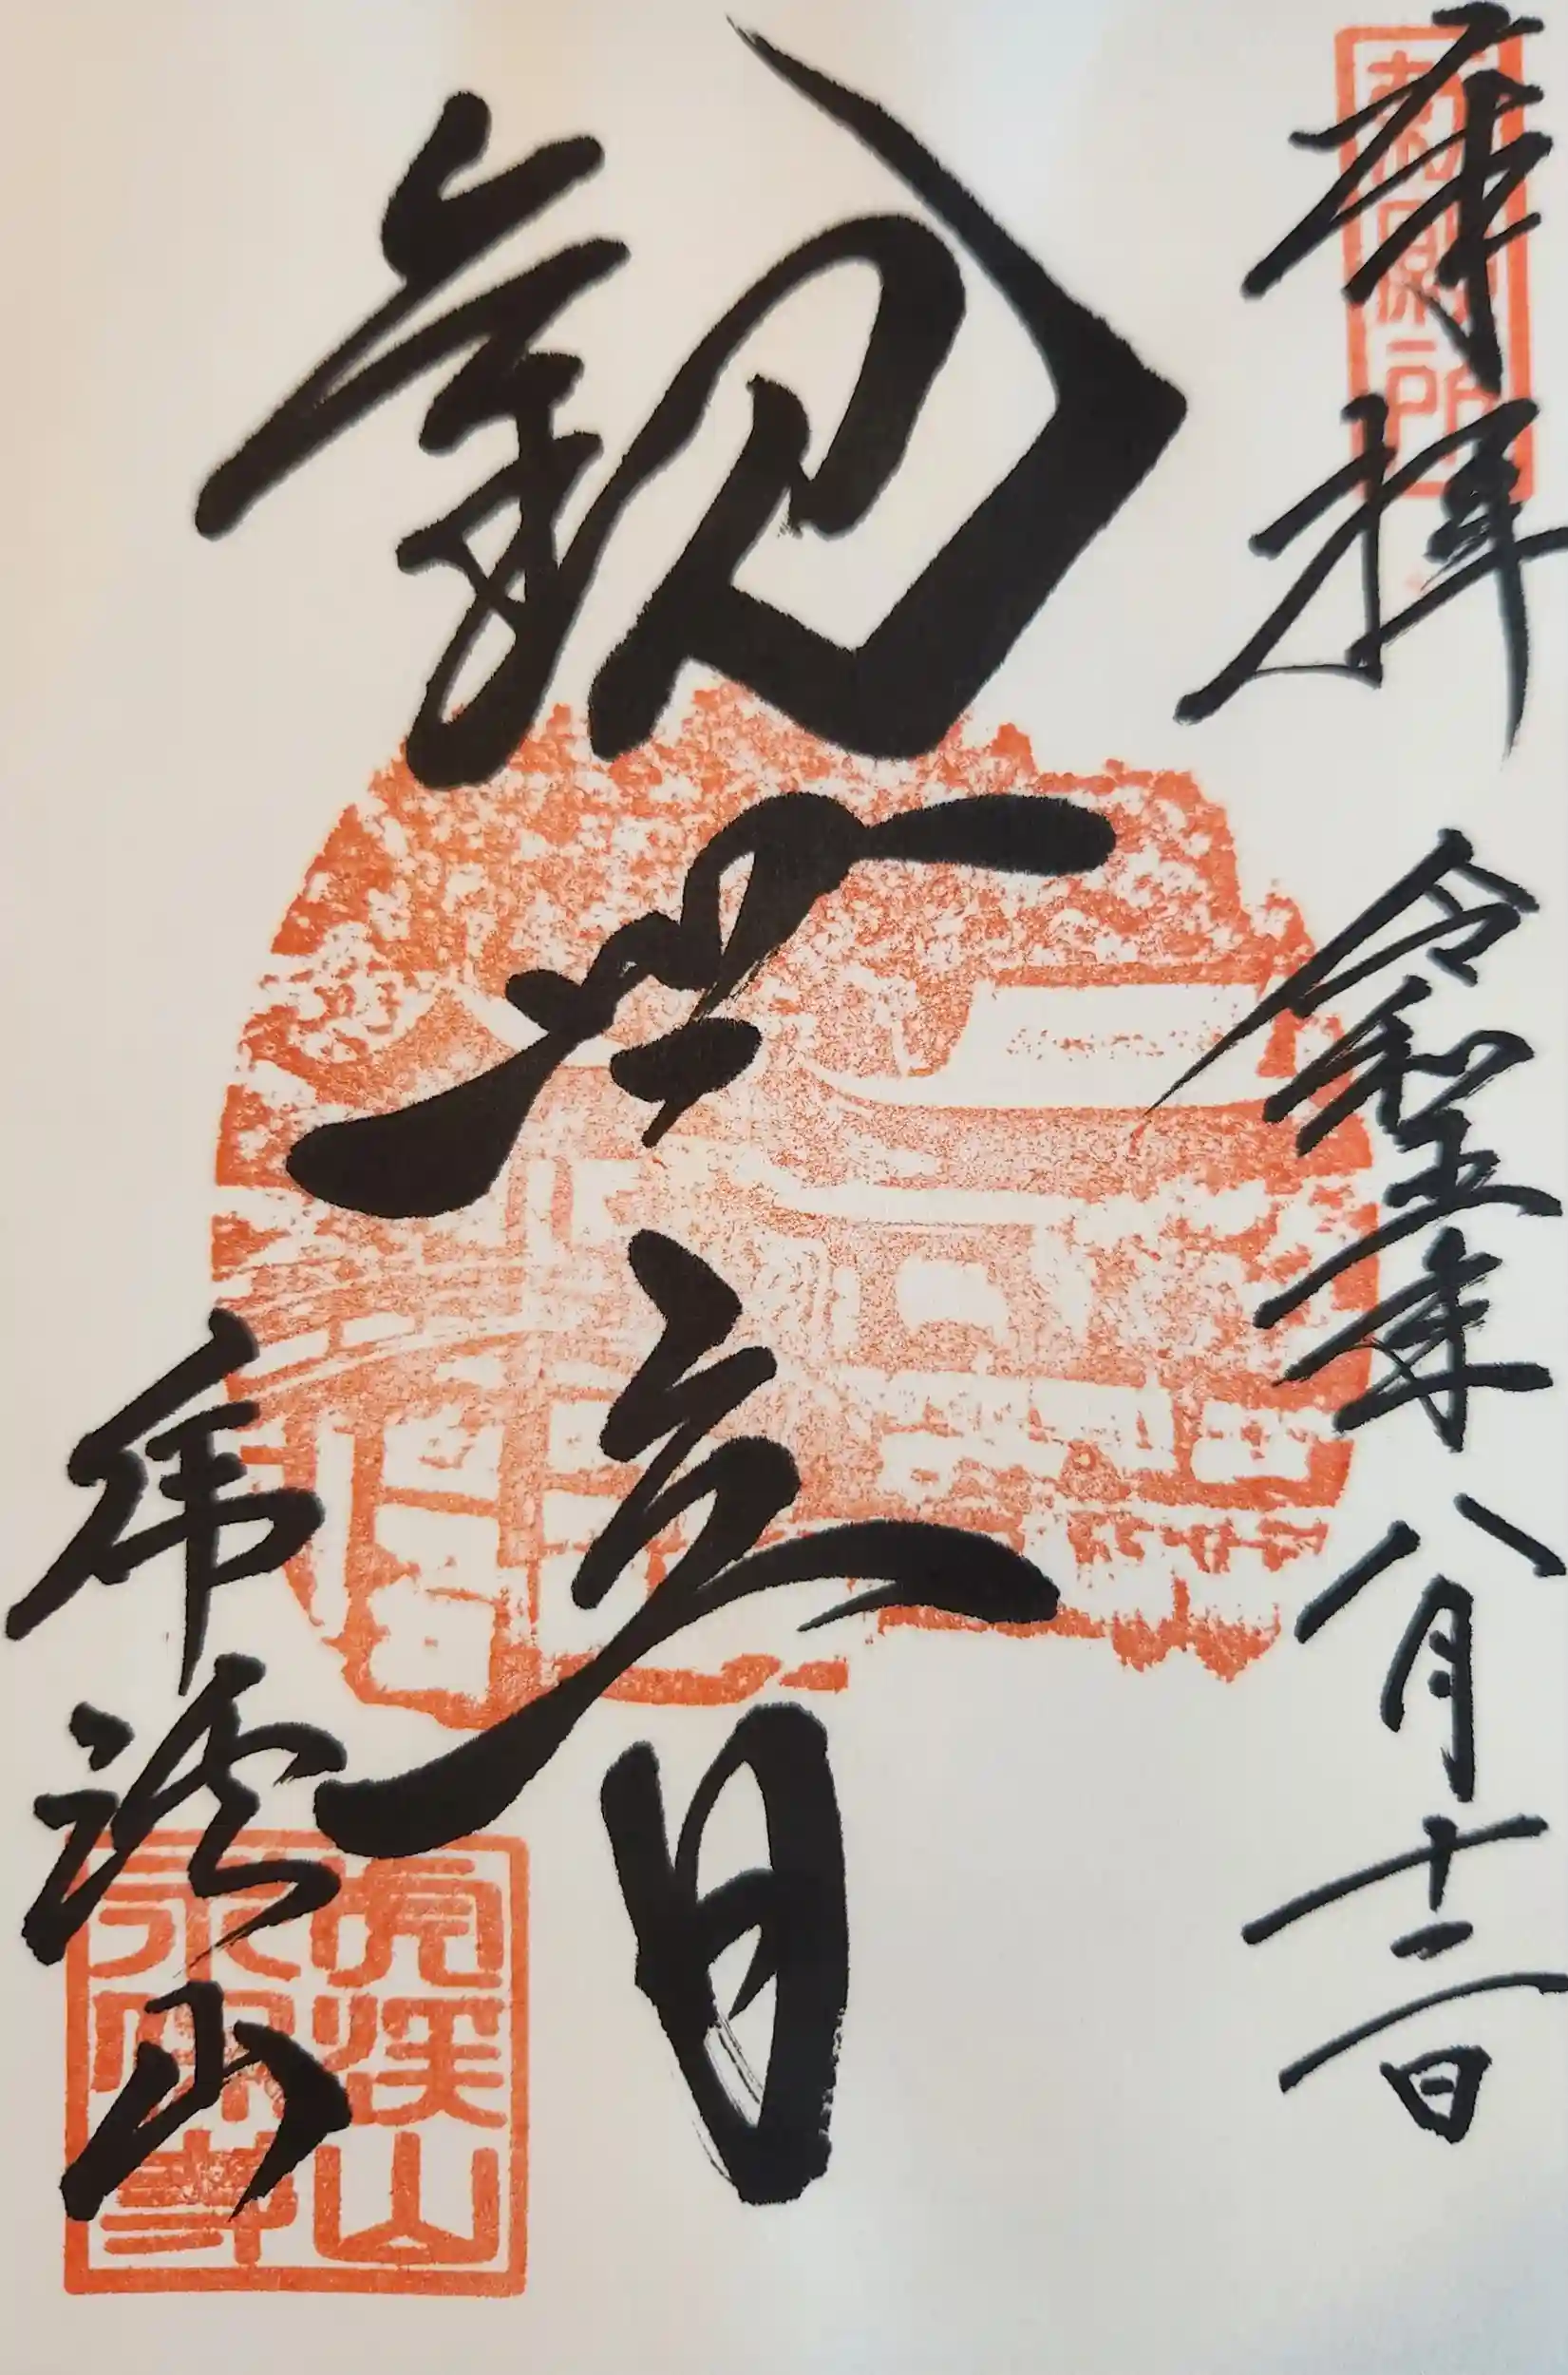 奉拝
令和五年八月十三日
観世音
虎渓山
虎渓山
永保寺